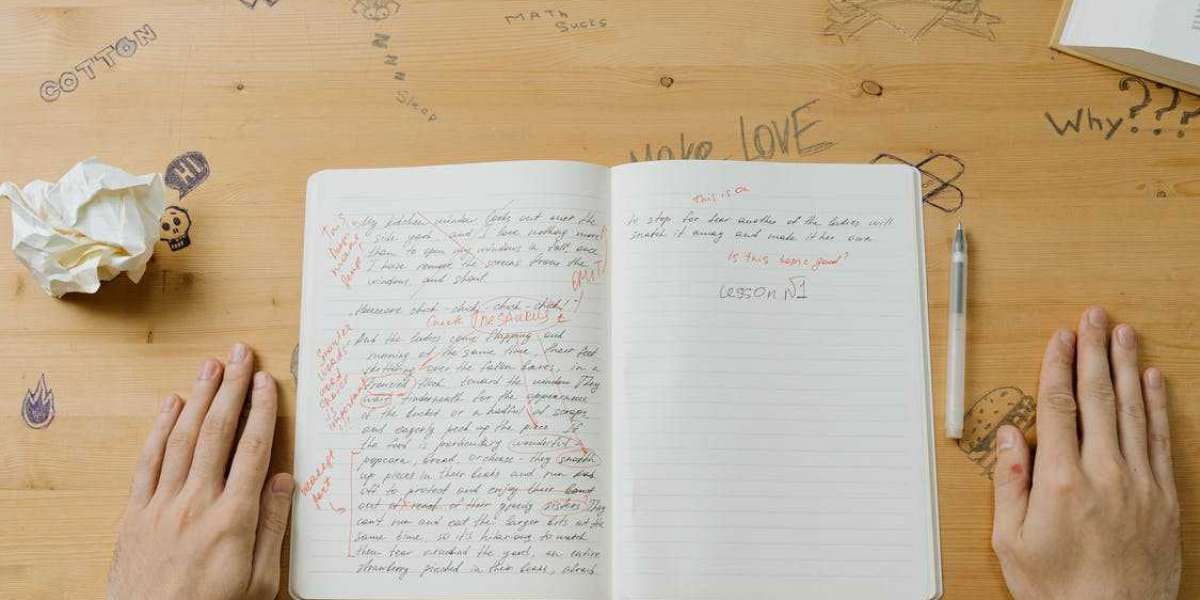 COTTON
zzzz
Sleep
MATH
Sucks
Make LOVE
Why???
HI
My kitchen window looks out over the
side yard and I love nothing more
than to open my windows in fall, once
I have remove the screens from the
window, and shout.
chick-chick, chick-chick!
Check THESAURUS
And the ladies come flapping and
running at the same time, their feet
over the fallen leaves, in a
flock toward the window. They
wait underneath for the appearance
of the bucket or a handful of scraps
and eagerly peck up the piece. If
the food is particularly wonderful
popcorn, bread, or cheese - they snatch
up pieces in their beaks and run
off to protect and enjoy their
out of reach of their greedy sisters. They
can't run and eat the larger bits at the
same time, so it's hilarious to watch
them tear around the yard, an entire
strawberry pierced in their beaks, afraid
important
part
this is a
to stop for fear another of the ladies will
snatch it away and make it her own
Is this topic good?
Lesson №1